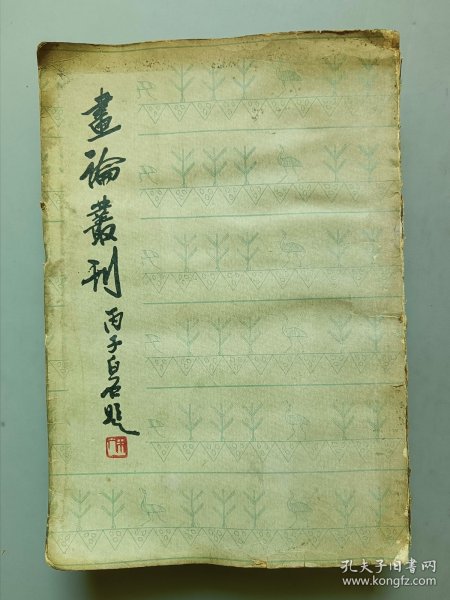 畫論叢刊
丙子白石題
孔夫子旧书网
www.kongfz.com